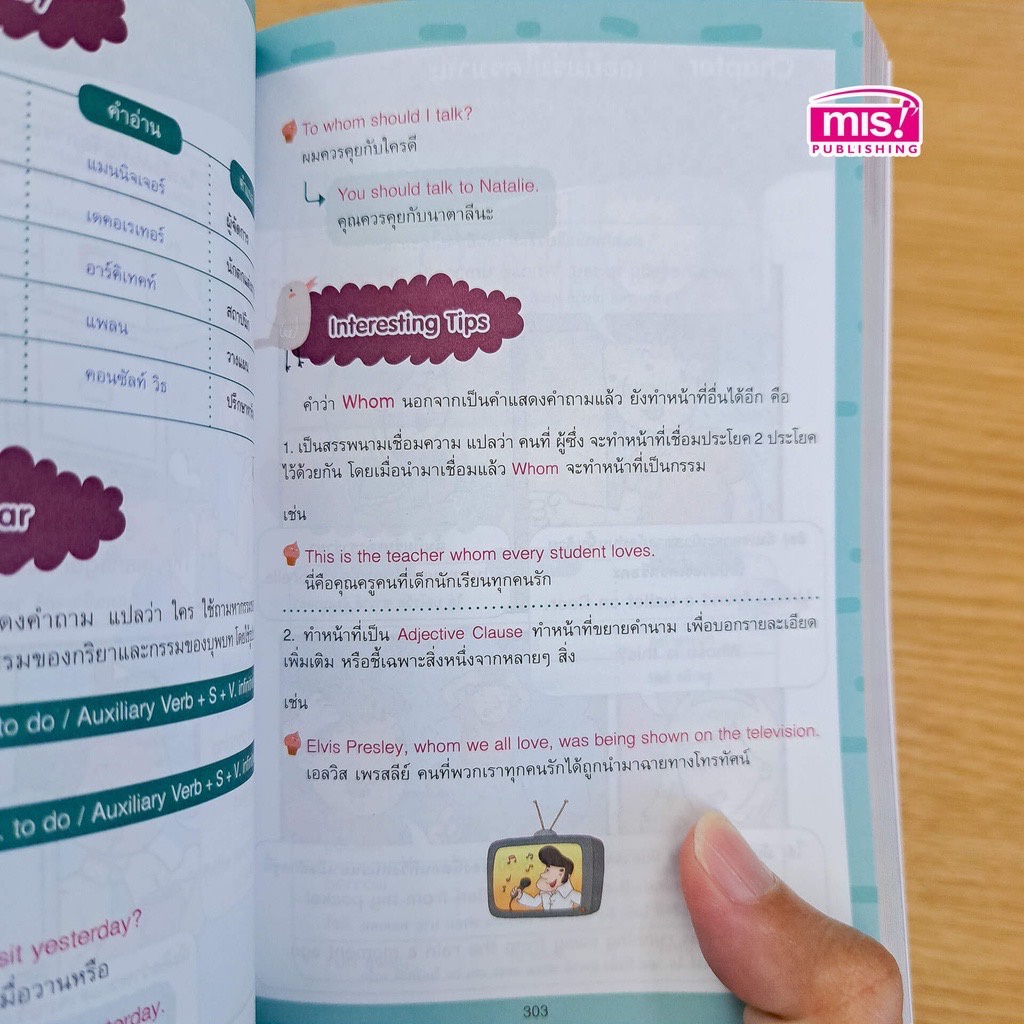 คำอ่าน
แมนนิจเจอร์
ผู้จัดการ
เดคอเรเทอร์
อาร์คิเทคท์
แพลน
วางแผน
คอนซัลท์ วิธ
ar
แปลว่า ใคร
รมของกริยาและกรรมของบุพบท
to do / Auxiliary Verb + S + V.
to do / Auxiliary Verb + S + V.
sit yesterday?
มื่อวานหรือ
mis!
PUBLISHING
To whom should I talk?
ผมควรคุยกับใครดี
You should talk to Natalie.
คุณควรคุยกับนาตาลีนะ
Interesting Tips
คำว่า Whom นอกจากเป็นคำแสดงคำถามแล้ว ยังทำหน้าที่อื่นได้อีก คือ
1. เป็นสรรพนามเชื่อมความ แปลว่า คนที่ ผู้ซึ่ง จะทำหน้าที่เชื่อมประโยค 2 ประโยค
ไว้ด้วยกัน โดยเมื่อนำมาเชื่อมแล้ว Whom จะทำหน้าที่เป็นกรรม
เช่น
This is the teacher whom every student loves.
นี่คือคุณครูคนที่เด็กนักเรียนทุกคนรัก
2. ทำหน้าที่เป็น Adjective Clause ทำหน้าที่ขยายคำนาม เพื่อบอกรายละเอียด
เพิ่มเติม หรือชี้เฉพาะสิ่งหนึ่งจากหลายๆ สิ่ง
เช่น
Elvis Presley, whom we all love, was being shown on the television.
เอลวิส เพรสลีย์ คนที่พวกเราทุกคนรักได้ถูกนำมาฉายทางโทรทัศน์
303